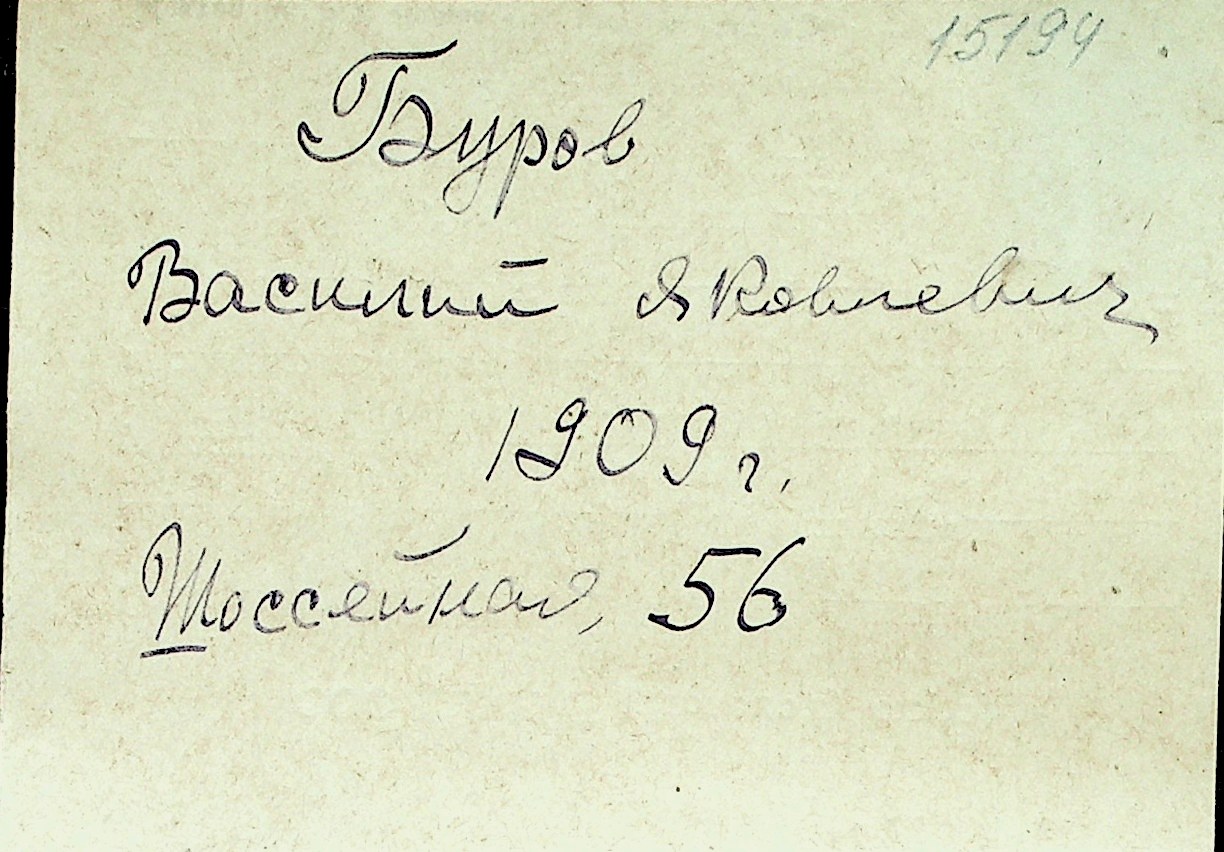 15194
Буров
Василий Яковлевич
1909 г.
Шоссейная, 56